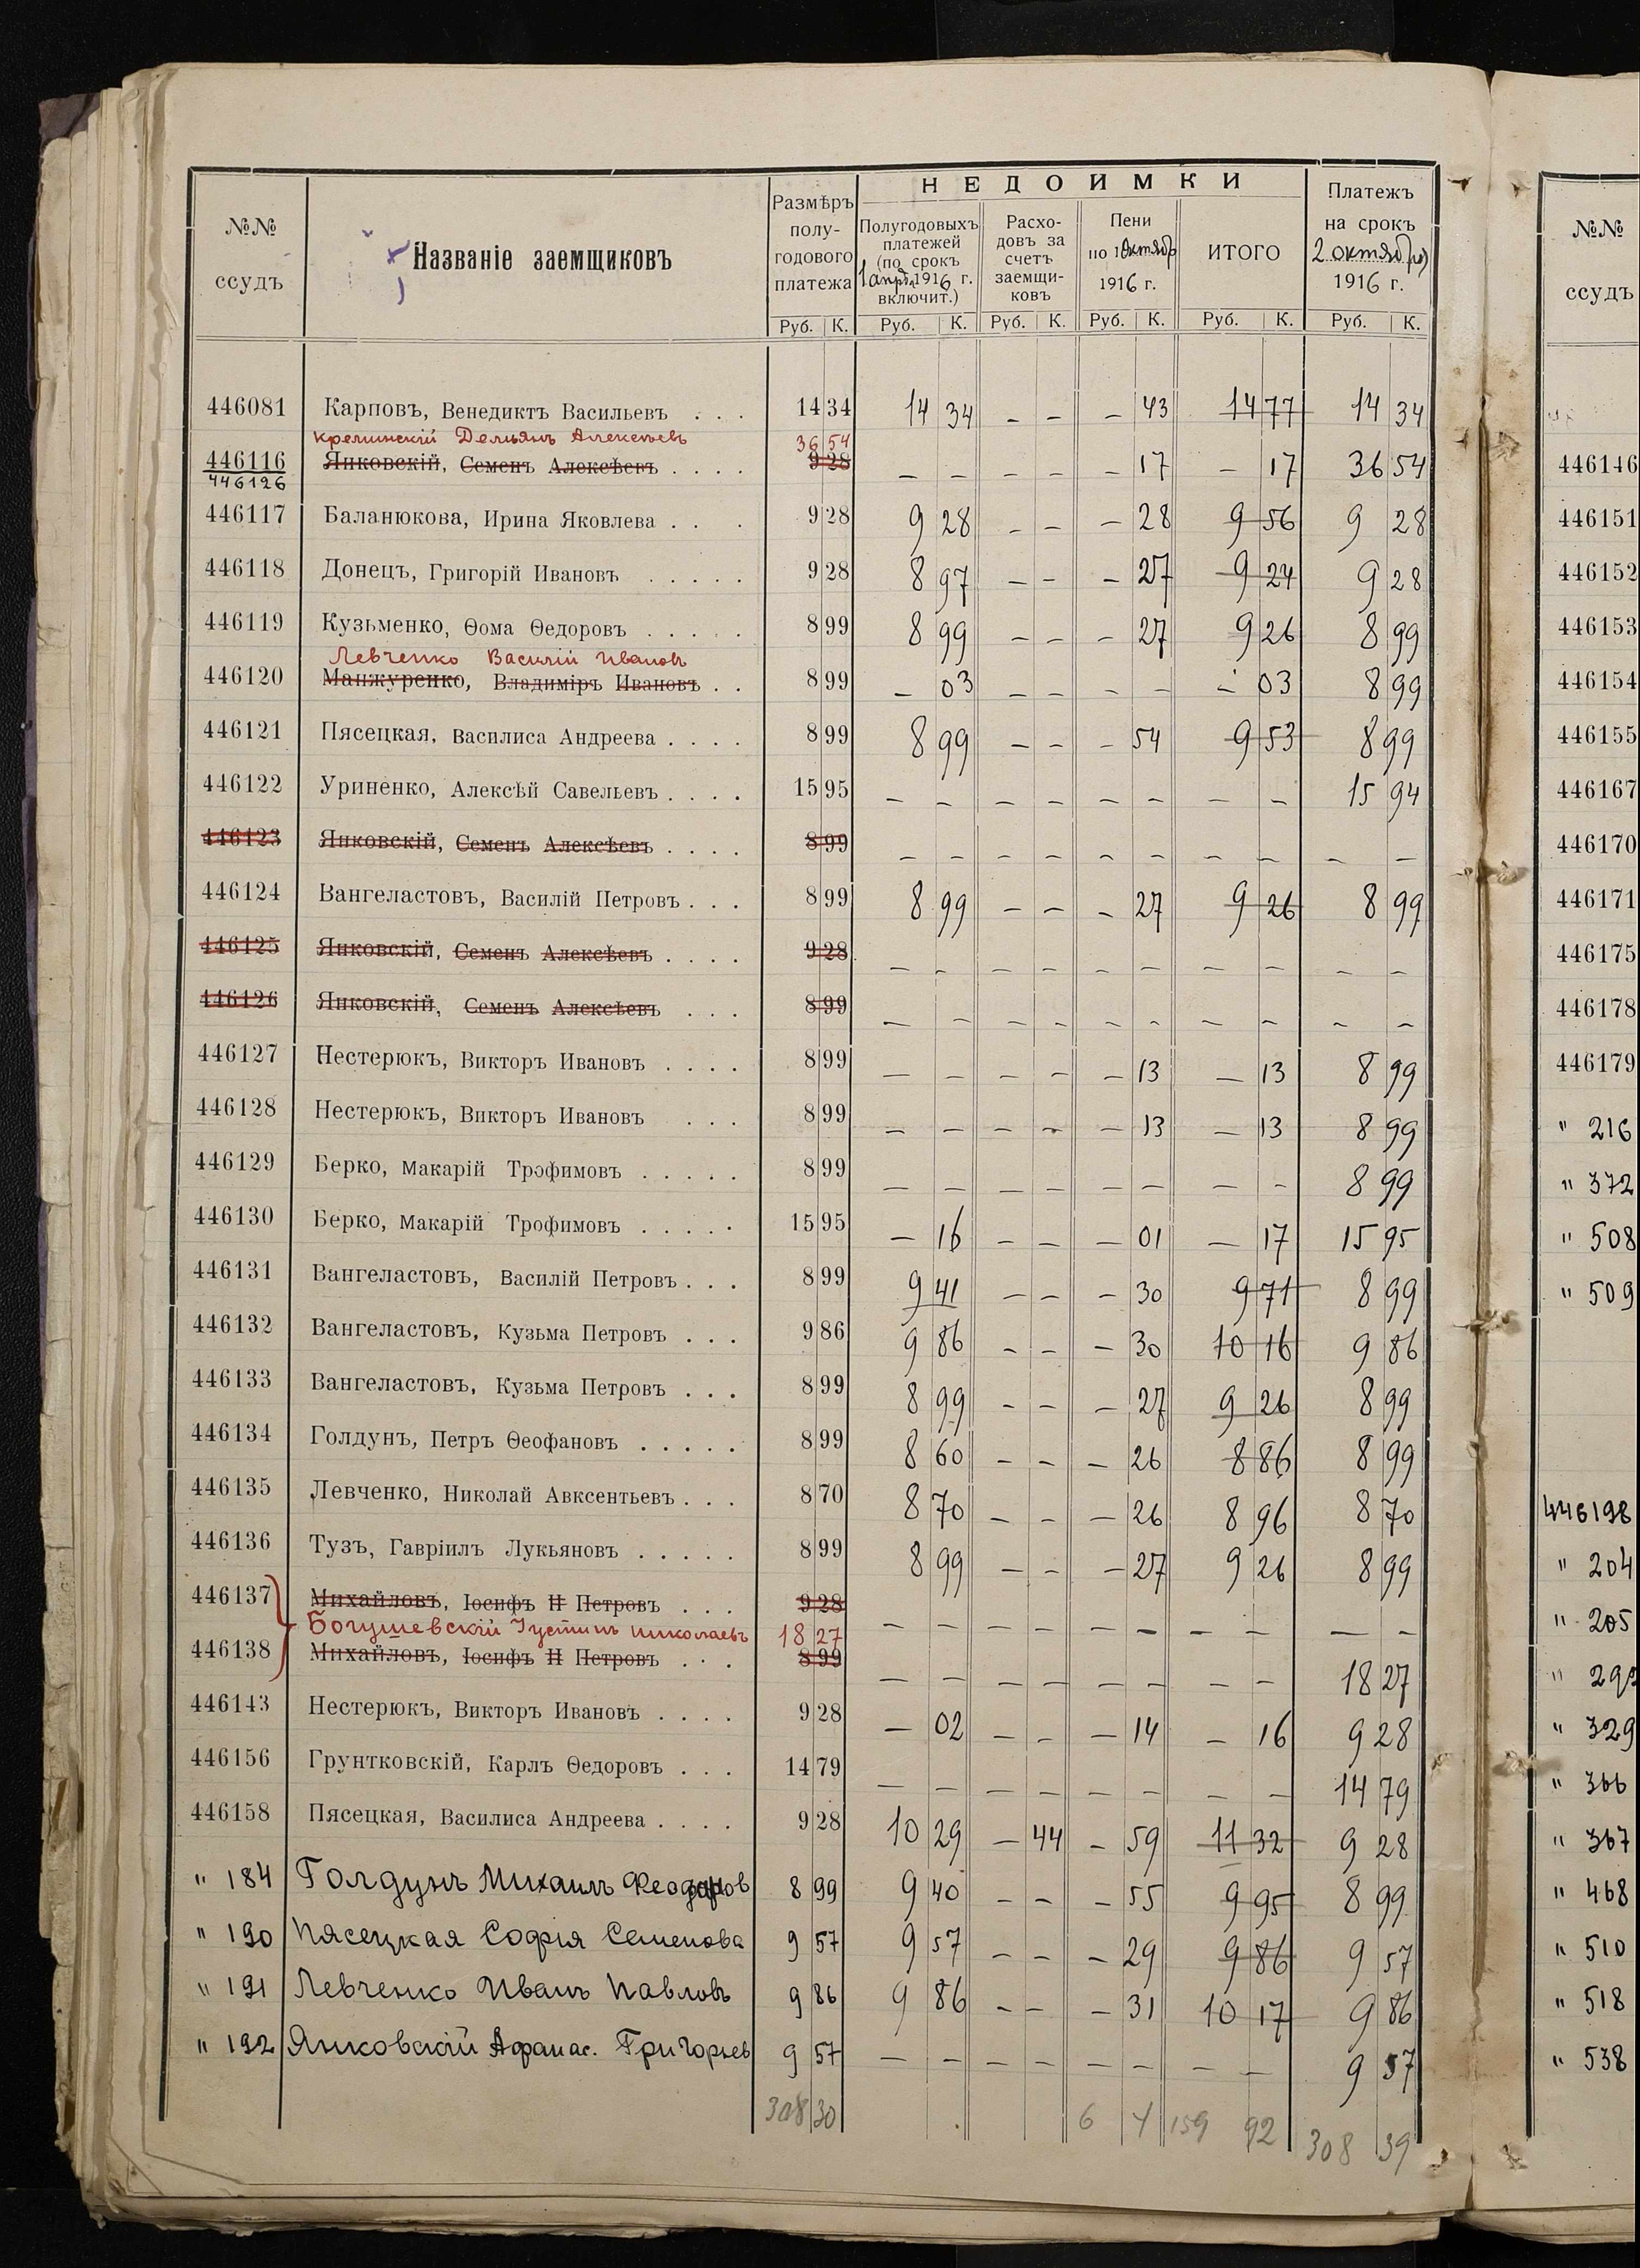 №№ ссудъ
Названіе заемщиковъ
Размѣръ полу-годового платежа
НЕДОИМКИ
Полугодовыхъ платежей (по срокъ 1 апр. 1916 г. включит.)
Расхо-довъ за счетъ заемщи-ковъ
Пени по 1 октябр 1916 г.
ИТОГО
Платежъ на срокъ 2 октября 1916 г.
№№ ссудъ
Руб. К. Руб. К. Руб. К. Руб. К. Руб. К. Руб. К.
446081 Карповъ, Венедиктъ Васильевъ . . . 14 34 14 34 – – – 43 14 77 14 34
Крепинскій Демьянъ Алексѣевъ 36 54
446116 Янковскій, Семенъ Алексѣевъ . . . . 9 28 – – – – – 17 – 17 36 54 446146
446126
446117 Баланюкова, Ирина Яковлева . . . 9 28 9 28 – – – 28 9 56 9 28 446151
446118 Донецъ, Григорій Ивановъ . . . . . 9 28 8 97 – – – 27 9 24 9 28 446152
446119 Кузьменко, Ѳома Ѳедоровъ . . . . . 8 99 8 99 – – – 27 9 26 8 99 446153
Левченко Василій Ивановъ
446120 Манжуренко, Владиміръ Ивановъ . . 8 99 – 03 – – – – – 03 8 99 446154
446121 Пясецкая, Василиса Андреева . . . . 8 99 8 99 – – – 54 9 53 8 99 446155
446122 Уриненко, Алексѣй Савельевъ . . . . 15 95 – – – – – – – – 15 94 446167
446123 Янковскій, Семенъ Алексѣевъ . . . . 8 99 – – – – – – – – – – 446170
446124 Вангеластовъ, Василій Петровъ . . . 8 99 8 99 – – – 27 9 26 8 99 446171
446125 Янковскій, Семенъ Алексѣевъ . . . . 9 28 – – – – – – – – – – 446175
446126 Янковскій, Семенъ Алексѣевъ . . . 8 99 – – – – – – – – – – 446178
446127 Нестерюкъ, Викторъ Ивановъ . . . . 8 99 – – – – – 13 – 13 8 99 446179
446128 Нестерюкъ, Викторъ Ивановъ . . . 8 99 – – – – – 13 – 13 8 99 " 216
446129 Берко, Макарій Трофимовъ . . . . . 8 99 – – – – – – – – 8 99 " 372
446130 Берко, Макарій Трофимовъ . . . . . 15 95 – 16 – – – 01 – 17 15 95 " 508
446131 Вангеластовъ, Василій Петровъ . . . 8 99 9 41 – – – 30 9 71 8 99 " 509
446132 Вангеластовъ, Кузьма Петровъ . . . 9 86 9 86 – – – 30 10 16 9 86
446133 Вангеластовъ, Кузьма Петровъ . . . 8 99 8 99 – – – 27 9 26 8 99
446134 Голдунъ, Петръ Ѳеофановъ . . . . . 8 99 8 60 – – – 26 8 86 8 99
446135 Левченко, Николай Авксентьевъ . . . 8 70 8 70 – – – 26 8 96 8 70 446198
446136 Тузъ, Гавріилъ Лукьяновъ . . . . . 8 99 8 99 – – – 27 9 26 8 99 " 204
446137 Михайловъ, Іосифъ II Петровъ . . . 9 28 – – – – – – – – – – " 205
Богушевскій Іустинъ Николаевъ 18 27
446138 Михайловъ, Іосифъ II Петровъ . . . 8 99 – – – – – – – – 18 27
446143 Нестерюкъ, Викторъ Ивановъ . . . . 9 28 – 02 – – – 14 – 16 9 28 " 329
446156 Грунтковскій, Карлъ Ѳедоровъ . . . 14 79 – – – – – – – – 14 79 " 366
446158 Пясецкая, Василиса Андреева . . . . 9 28 10 29 – 44 – 59 11 32 9 28 " 367
" 184 Голдунъ Михаилъ 8 99 9 40 – – – 55 9 95 8 99 " 468
" 190 Пясецкая Софія Семенова 9 57 9 57 – – – 29 9 86 9 57 " 510
" 191 Левченко Иванъ Павловъ 9 86 9 86 – – – 31 10 17 9 86 " 518
" 192 Янковскій Афанас. Григорьев 9 57 – – – – – – – – 9 57 " 538
308 30 6 159 92 308 39